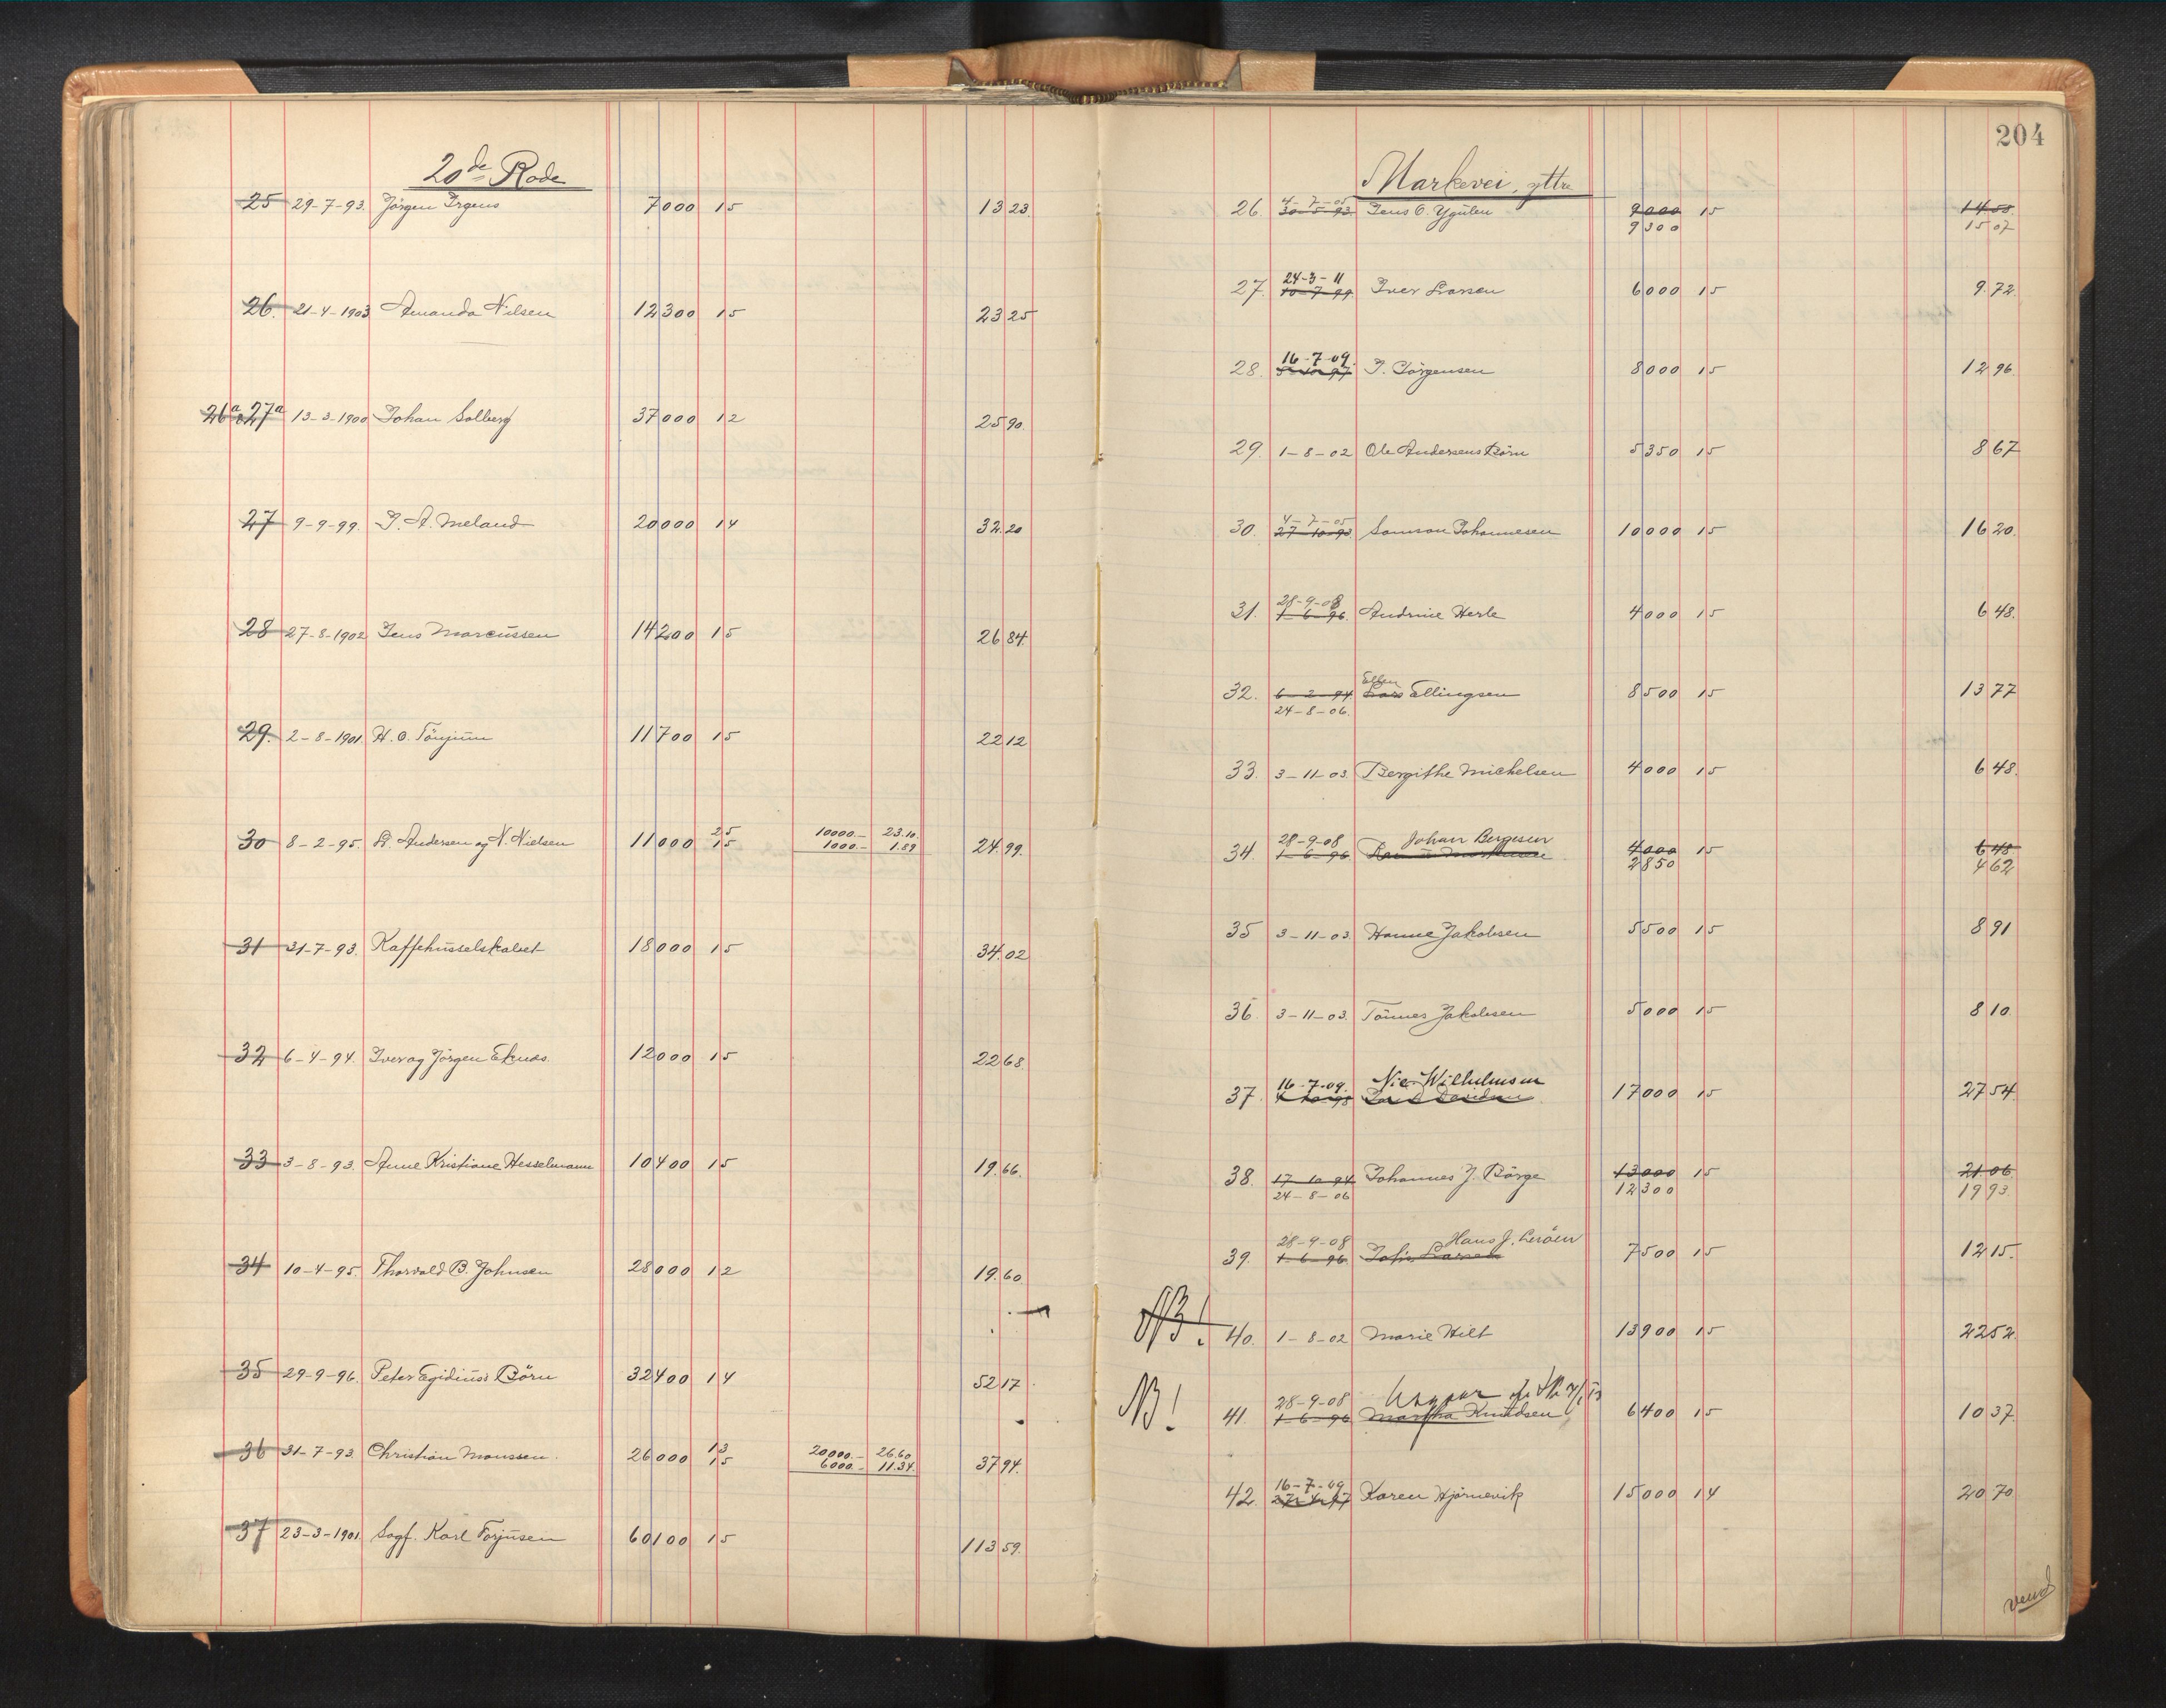 20de Rode
25 29-7-93. Jörgen Irgens 7000 15 13 23
26. 21-4-1903 Amanda Nilsen 12300 15 23 25
26a & 27a 13-3-1900 Johan Solberg 37000 12 25 90.
27 9-9-99. J. A. Meland 20000 14 32.20
28 27-8-1902 Jens Marcussen 14200 15 26 84.
29. 2-8-1901. H. O. Tönjum 11700 15 22 12
25 10000.- 23.10.
30 8-2-95. L. Andersen og N. Nielsen 11000 15 1000.- 1.89 24.99.
31 31-7-93. Kaffehusselskabet 18000 15 34.02
32 6-4-94. Iver og Jörgen Eknes. 12000 15 22 68.
33 3-8-93. Anne Kristiane Hesselmann 10400 15 19.66.
34 10-4-95. Thorvald B. Johnsen 28000 12 19.60
35 29-9-96. Peter Egidius's Börn 32400 14 52 17
13 20000.- 26.60
36 31-7-93. Christian Monssen. 26000 15 6000.- 11.34. 37 94.
37 23-3-1901. Sagf. Karl Torjusen 60100 15 113 59.
204
Markevei, yttre
4-7-05
26. 30-5-93 Jens O. Ygülen 9000 15 14 58
9300 15 07
24-3-11
27. 10-7-99. Iver Larsen 6000 15 9.72.
16-7-09.
28. J. Jörgensen 8000 15 12 96
29. 1-8-02 Ole Andersens Börn 5350 15 8 67
4-7-05
30. 27-10-93 Samson Johannesen 10000 15 16 20.
28-9-08
31. 1-6-96. Andrine Herle 4000 15 6 48.
Ellen
32. 6-2-94 Lars Ellingsen 8500 15 13 77
24-8-06.
33. 3-11-03. Bergithe Michelsen 4000 15 6 48.
28-9-08 Johan Bergesen
34. 1-6-96 4000 15 6 48
2850 4 62
35 3-11-03. Hanne Jakobsen 5500 15 8 91
36. 3-11-03. Tönnes Jakobsen 5000 15 8 10
16-7-09. Nic. Wilhelmsen
37. 17000 15 27 54.
38. 17-10-94 Johannes J. Börge 13000 15 21.06.
24-8-06 12300 19 93.
28-9-08 Hans J. Leröen
39. 1-6-96 Johs. Larsen 7500 15 12 15.
NB! 40. 1-8-02 Marie Hilt 13900 15 22 52.
28-9-08
NB! 41. 1-6-96 Martha Knudsen 6400 15 10 37.
16-7-09
42. 27-4-97 Karen Hjörnevik 15000 14 20 70
vend